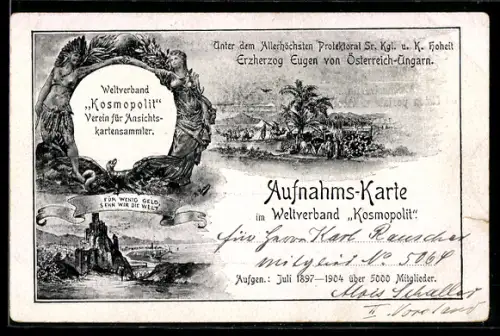 Unter dem Allerhöchsten Protektorat Sr. Kgl. u. K. Hoheit
Erzherzog Eugen von Österreich-Ungarn.
Weltverband
„Kosmopolit"
Verein für Ansichts-
kartensammler.
FÜR WENIG GELD,
SEHN WIR DIE WELT
Aufnahms-Karte
im Weltverband „Kosmopolit"
für Herrn Karl Rauscher
Mitglied No 5064
Aufgen.: Juli 1897—1904 über 5000 Mitglieder.
Alois Schaller
II